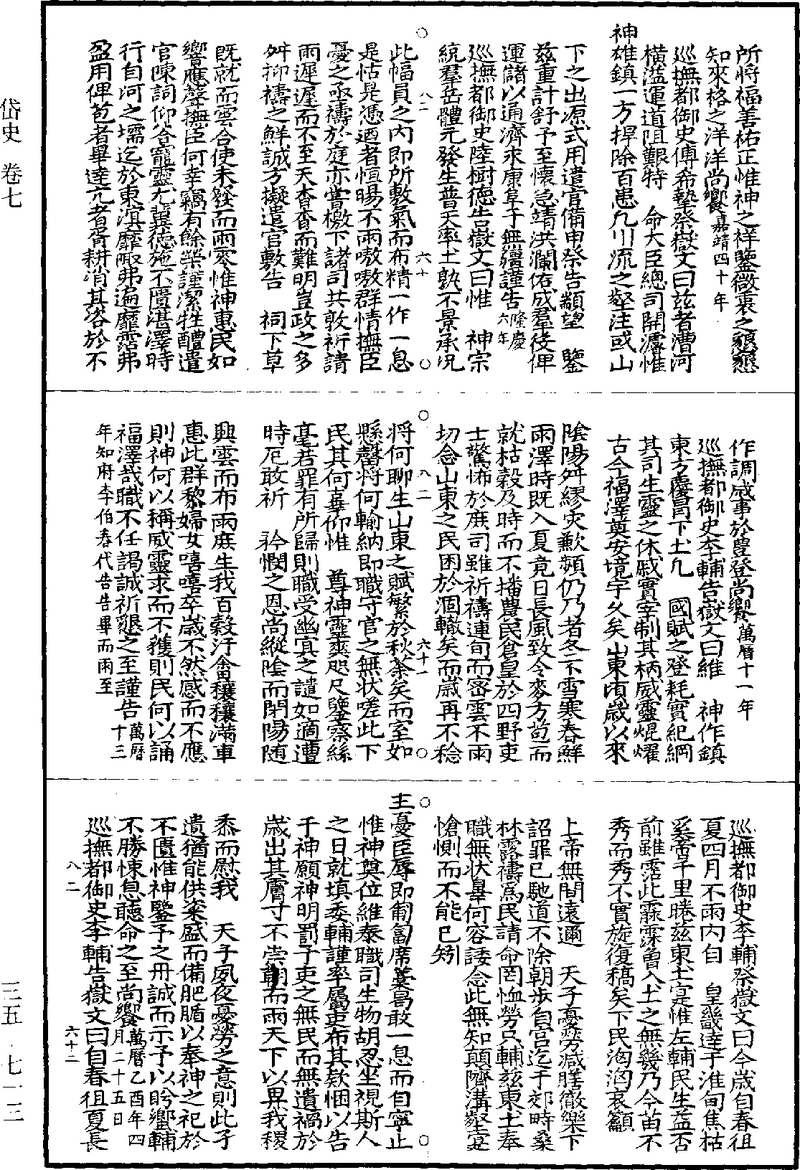 岱史 卷七
三五·七一三
所將福善祐正惟神之祥鑒微衷之懇懇
知來格之洋洋尚饗嘉靖四十年
巡撫都御史傅希摯祭嶽文曰茲者漕河
橫溢運道阻艱特 命大臣總司開濬惟
神雄鎮一方捍除百患凡川流之壑注或山
下之出源式用遣官備申祭告顒望 鑒
茲重計舒予至懷急靖洪瀾佑成羣役俾
運儲以通濟永康阜于無疆謹告隆慶六年
巡撫都御史陸樹德告嶽文曰惟 神宗
統羣岳體元發生普天率土孰不景承況
八二 六十
此幅員之內即所敷氣而布精一作一息
是怙是憑迺者恒暘不雨嗷嗷群情撫臣
憂之亟禱於庭亦嘗檄下諸司共敦祈請
雨遲遲而不至天杳杳而難明豈政之多
舛抑禱之鮮誠方擬遣官敷告 祠下草
既就而雲合使未發而雨零惟神惠民如
響應聲撫臣何幸竊有餘榮謹潔牲醴遣
官陳詞仰答寵靈尤冀德施不匱湛澤時
行自河之壖迄於東溟靡畎弗遍靡霑弗
盈用俾芑者畢達亢者胥耕消其沴於不
作調咸事於豊登尚饗萬曆十一年
巡撫都御史李輔告嶽文曰維 神作鎮
東方慶冒下土凡 國賦之登耗實紀綱
其司生靈之休戚實宰制其柄威靈焜燿
古今福澤奠安境宇久矣山東頃歲以來
陰陽舛繆灾歉頻仍乃者冬不雪寒春鮮
雨澤時既入夏竟日長風致令麥方苞而
就枯穀及時而不播豊民倉皇於四野吏
士驚怖於庶司雖祈禱連旬而密雲不雨
切念山東之民困於涸轍矣而歲再不稔
八二 六十一
將何聊生山東之賦繁於秋荼矣而至如
懸罄將何輸納即職守官之無狀嗟此下
民其何辜仰惟 尊神靈爽咫尺鑒察絲
毫若罪有所歸則職受幽冥之譴如適遭
時厄敢祈 矜憫之恩尚縱陰而閉陽随
興雲而布雨庶生我百穀汙畬穰穰滿車
惠此群黎婦女嘻嘻卒歲不然感而不應
則神何以稱威靈求而不獲則民何以誦
福澤哉職不任謁誠祈懇之至謹告萬曆十三
年知府李伯春代告告畢而雨至
巡撫都御史李輔祭嶽文曰今歲自春徂
夏四月不雨內自 皇畿達于淮甸焦枯
奚啻千里睠茲東土寔惟左輔民生益否
前雖霑此霡霂曾入土之無幾乃今苗不
秀而秀不實旋復稿矣下民洶洶哀籲
上帝無間遠邇 天子憂勞減膳徹樂下
詔罪已馳道不除朝步自宮迄于郊時桑
林露禱為民請命罔恤勞只輔茲東土奉
職無狀辠何容諉念此無知顛隮溝壑寔
愴惻而不能已矧
主憂臣辱即匍匐席藁曷敢一息而自寧止
惟神奠位維泰職司生物胡忍坐視斯人
之日就填委輔謹率屬吏布其欵悃以告
于神願神明罰予吏之無民而無遺禍於
歲出其膚寸不崇朝而雨天下以畀我稷
黍而慰我 天子夙夜憂勞之意則此孑
遺猶能供粢盛而備肥腯以奉神之祀於
不匱惟神鑒予之丹誠而示予以肹蠁輔
不勝悚息聽命之至尚饗萬曆乙酉年四月二十五日
巡撫都御史李輔告嶽文曰自春徂夏長
八二 六十二